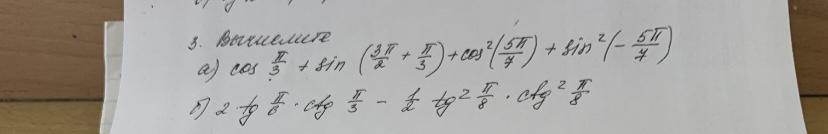 3. Вычислите
а) cos π/3 + sin (3π/2 + π/3) + cos²(5π/7) + sin²(-5π/7)
б) 2 tg π/6 · ctg π/3 - 1/2 tg² π/8 · ctg² π/8